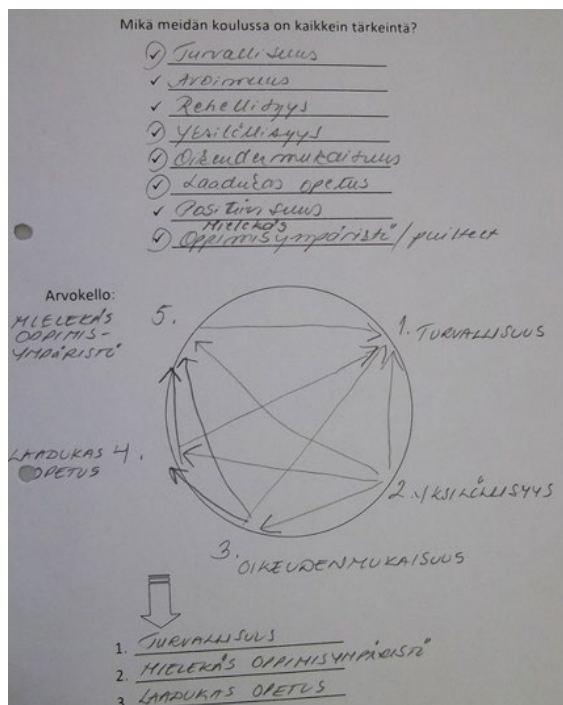 Mikä meidän koulussa on kaikkein tärkeintä?
✓ Turvallisuus
✓ Avoimuus
✓ Rehellisyys
✓ Yksilöllisyys
✓ Oikeudenmukaisuus
✓ Laadukas opetus
✓ Positiivisuus
Mielekäs
✓ Oppimisympäristö / puitteet
Arvokello:
5. MIELEKÄS
OPPIMIS-
YMPÄRISTÖ
1. TURVALLISUUS
LAADUKAS 4.
OPETUS
2. YKSILÖLLISYYS
3. OIKEUDENMUKAISUUS
1. TURVALLISUUS
2. MIELEKÄS OPPIMISYMPÄRISTÖ
3. LAADUKAS OPETUS